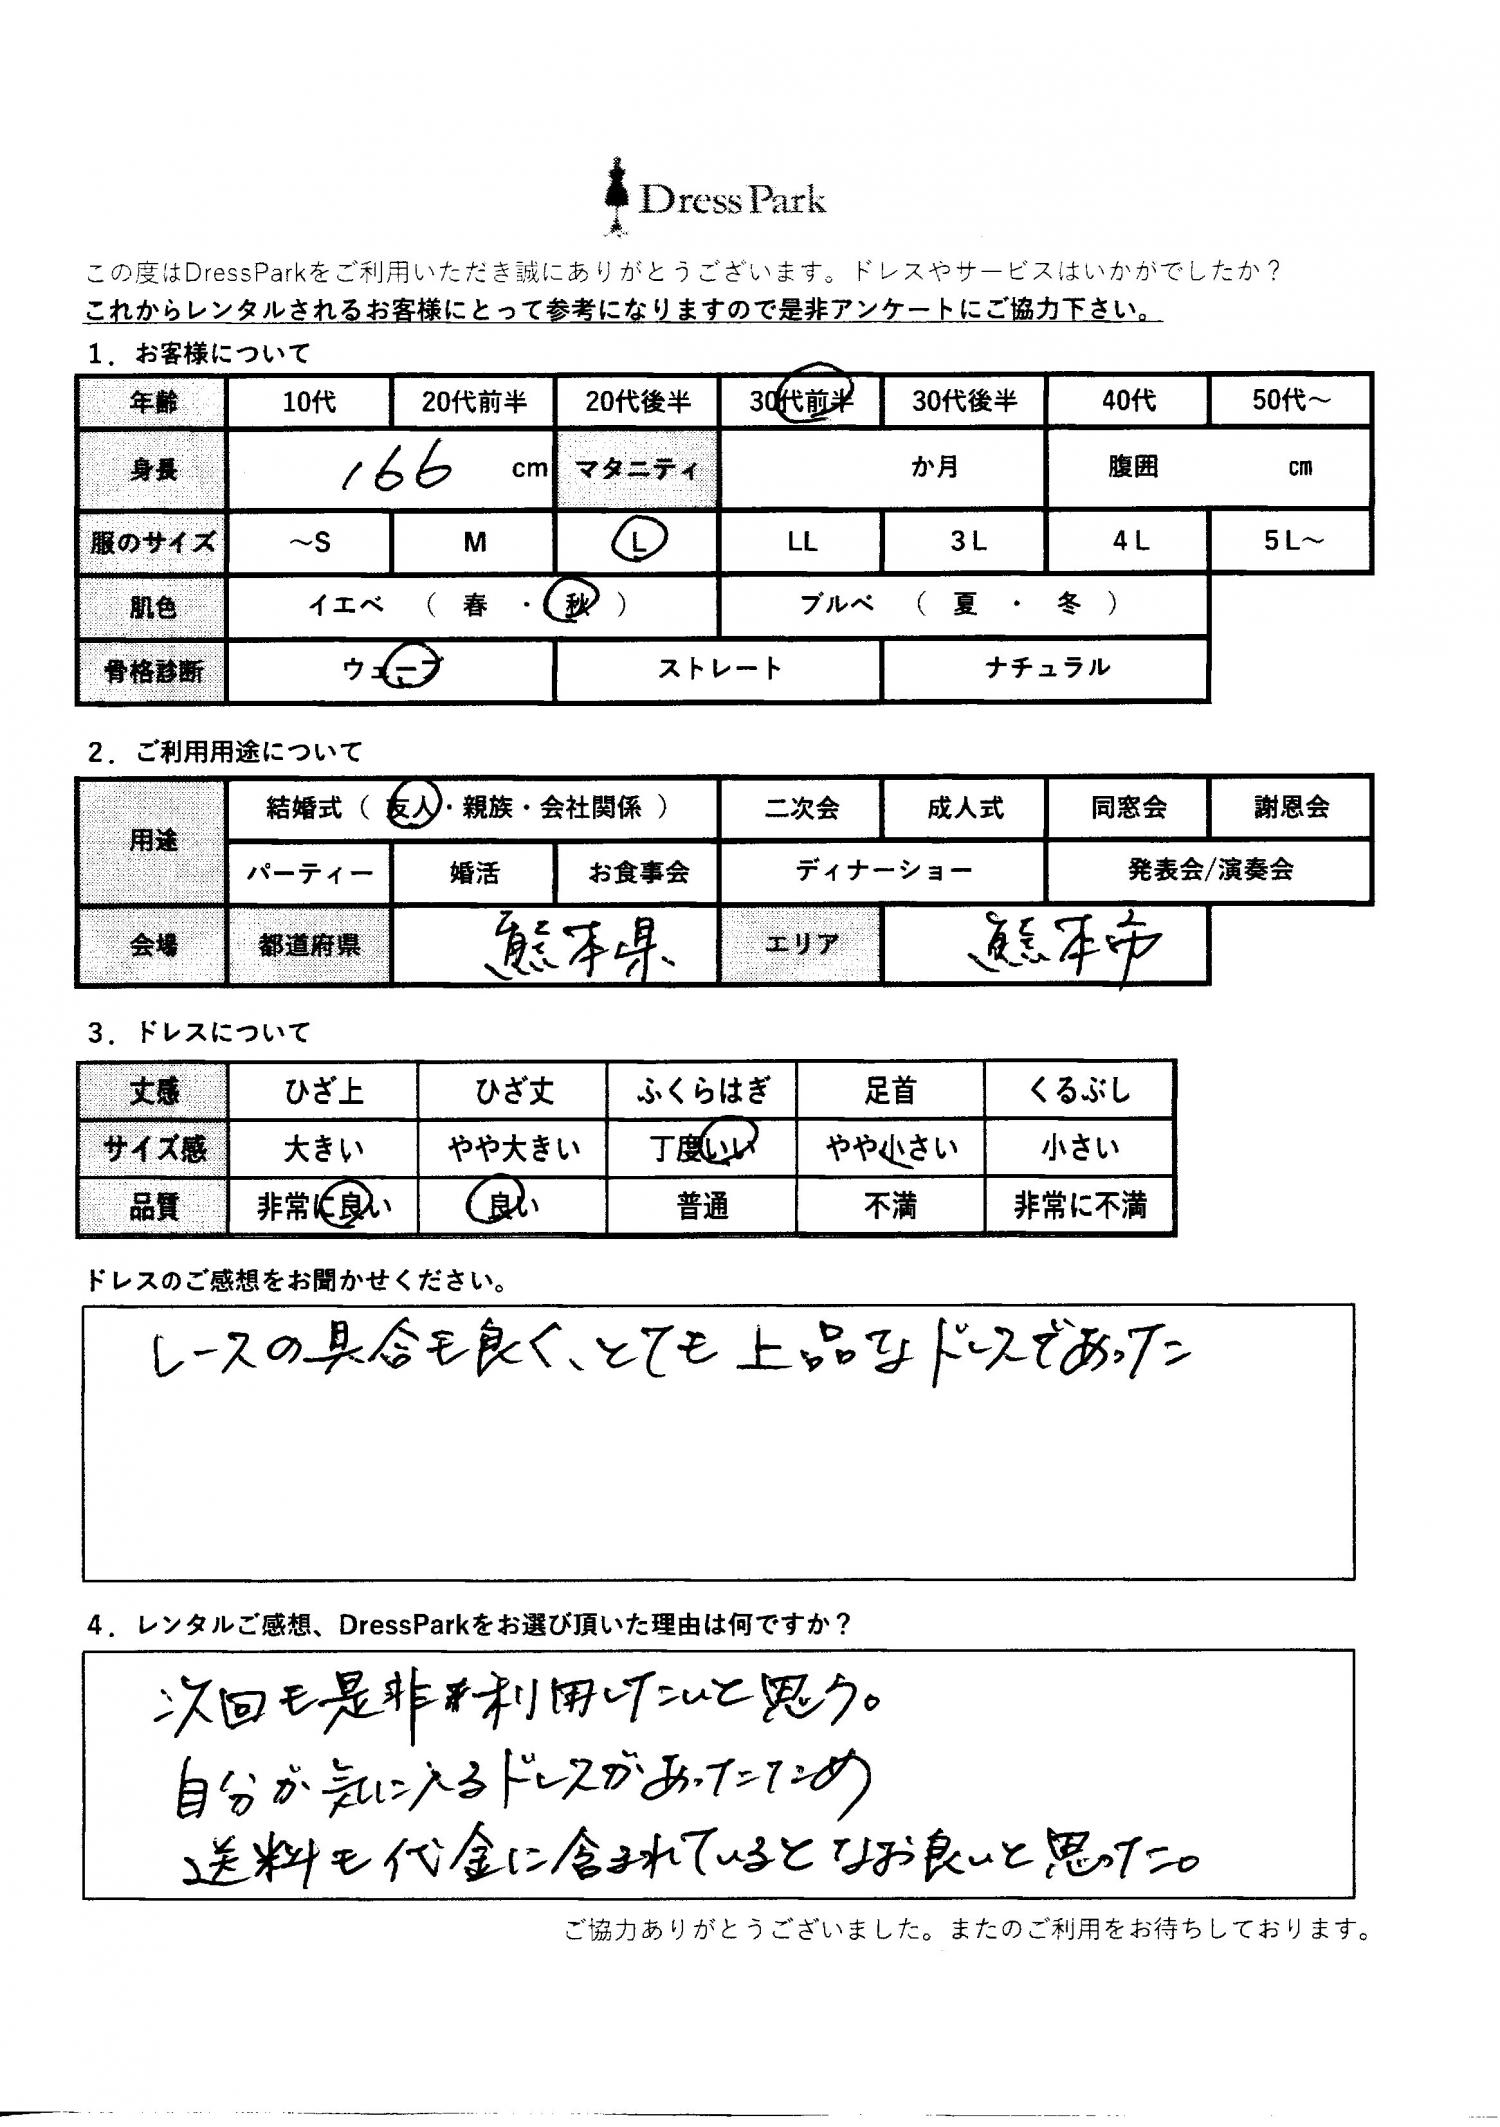 Dress Park
この度はDressParkをご利用いただき誠にありがとうございます。ドレスやサービスはいかがでしたか？
これからレンタルされるお客様にとって参考になりますので是非アンケートにご協力下さい。
1. お客様について
年齢 10代 20代前半 20代後半 30代前半 30代後半 40代 50代～
身長 166 cm マタニティ か月 腹囲 cm
服のサイズ ～S M L LL 3L 4L 5L～
肌色 イエベ （ 春 ・ 秋 ） ブルベ （ 夏 ・ 冬 ）
骨格診断 ウェーブ ストレート ナチュラル
2. ご利用用途について
用途 結婚式（ 友人・親族・会社関係 ） 二次会 成人式 同窓会 謝恩会
パーティー 婚活 お食事会 ディナーショー 発表会/演奏会
会場 都道府県 熊本県 エリア 熊本市
3. ドレスについて
丈感 ひざ上 ひざ丈 ふくらはぎ 足首 くるぶし
サイズ感 大きい やや大きい 丁度いい やや小さい 小さい
品質 非常に良い 良い 普通 不満 非常に不満
ドレスのご感想をお聞かせください。
レースの具合も良く、とても上品なドレスであった
4. レンタルご感想、DressParkをお選び頂いた理由は何ですか？
次回も是非利用したいと思う。
自分が気に入るドレスがあったため
送料も代金に含まれているとなお良いと思った。
ご協力ありがとうございました。またのご利用をお待ちしております。